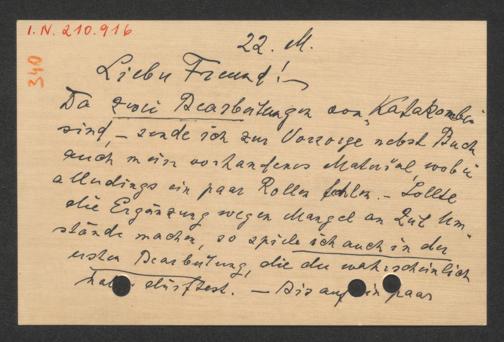 I.N. 210.916
340
22. M.
Lieber Freund! –
Da zwei Bearbeitungen von „Katakomben
sind, – sende ich zur Vorsorge nebst Buch
auch mein vorhandenes Material, wobei
allerdings ein paar Rollen fehlen. – Sollte
die Ergänzung wegen Mangel an Zeit Um-
stände machen, so spiele ich auch in der
ersten Bearbeitung, die du wahrscheinlich
haben dürftest. – Bis auf ein paar